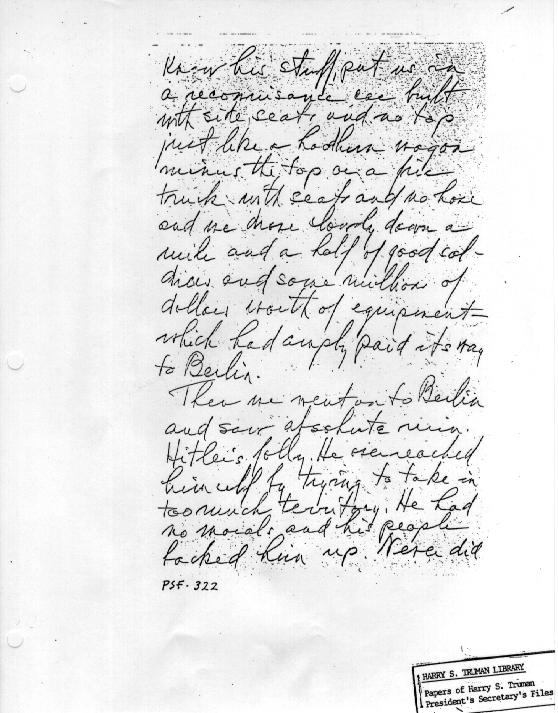 know his stuff, put us in
a reconnisance car built
with side seats and no top
just like a hoodlum wagon
minus the top or a fire
truck with seats and no hose
and we drove slowly down a
mile and a half of good sol-
diers and some millions of
dollars worth of equipment—
which had amply paid its way
to Berlin.
Then we went on to Berlin
and saw absolute ruin.
Hitler's folly. He overreached
himself by trying to take in
too much territory. He had
no morals and his people
backed him up. Never did
PSF-322
HARRY S. TRUMAN LIBRARY
Papers of Harry S. Truman
President's Secretary's Files